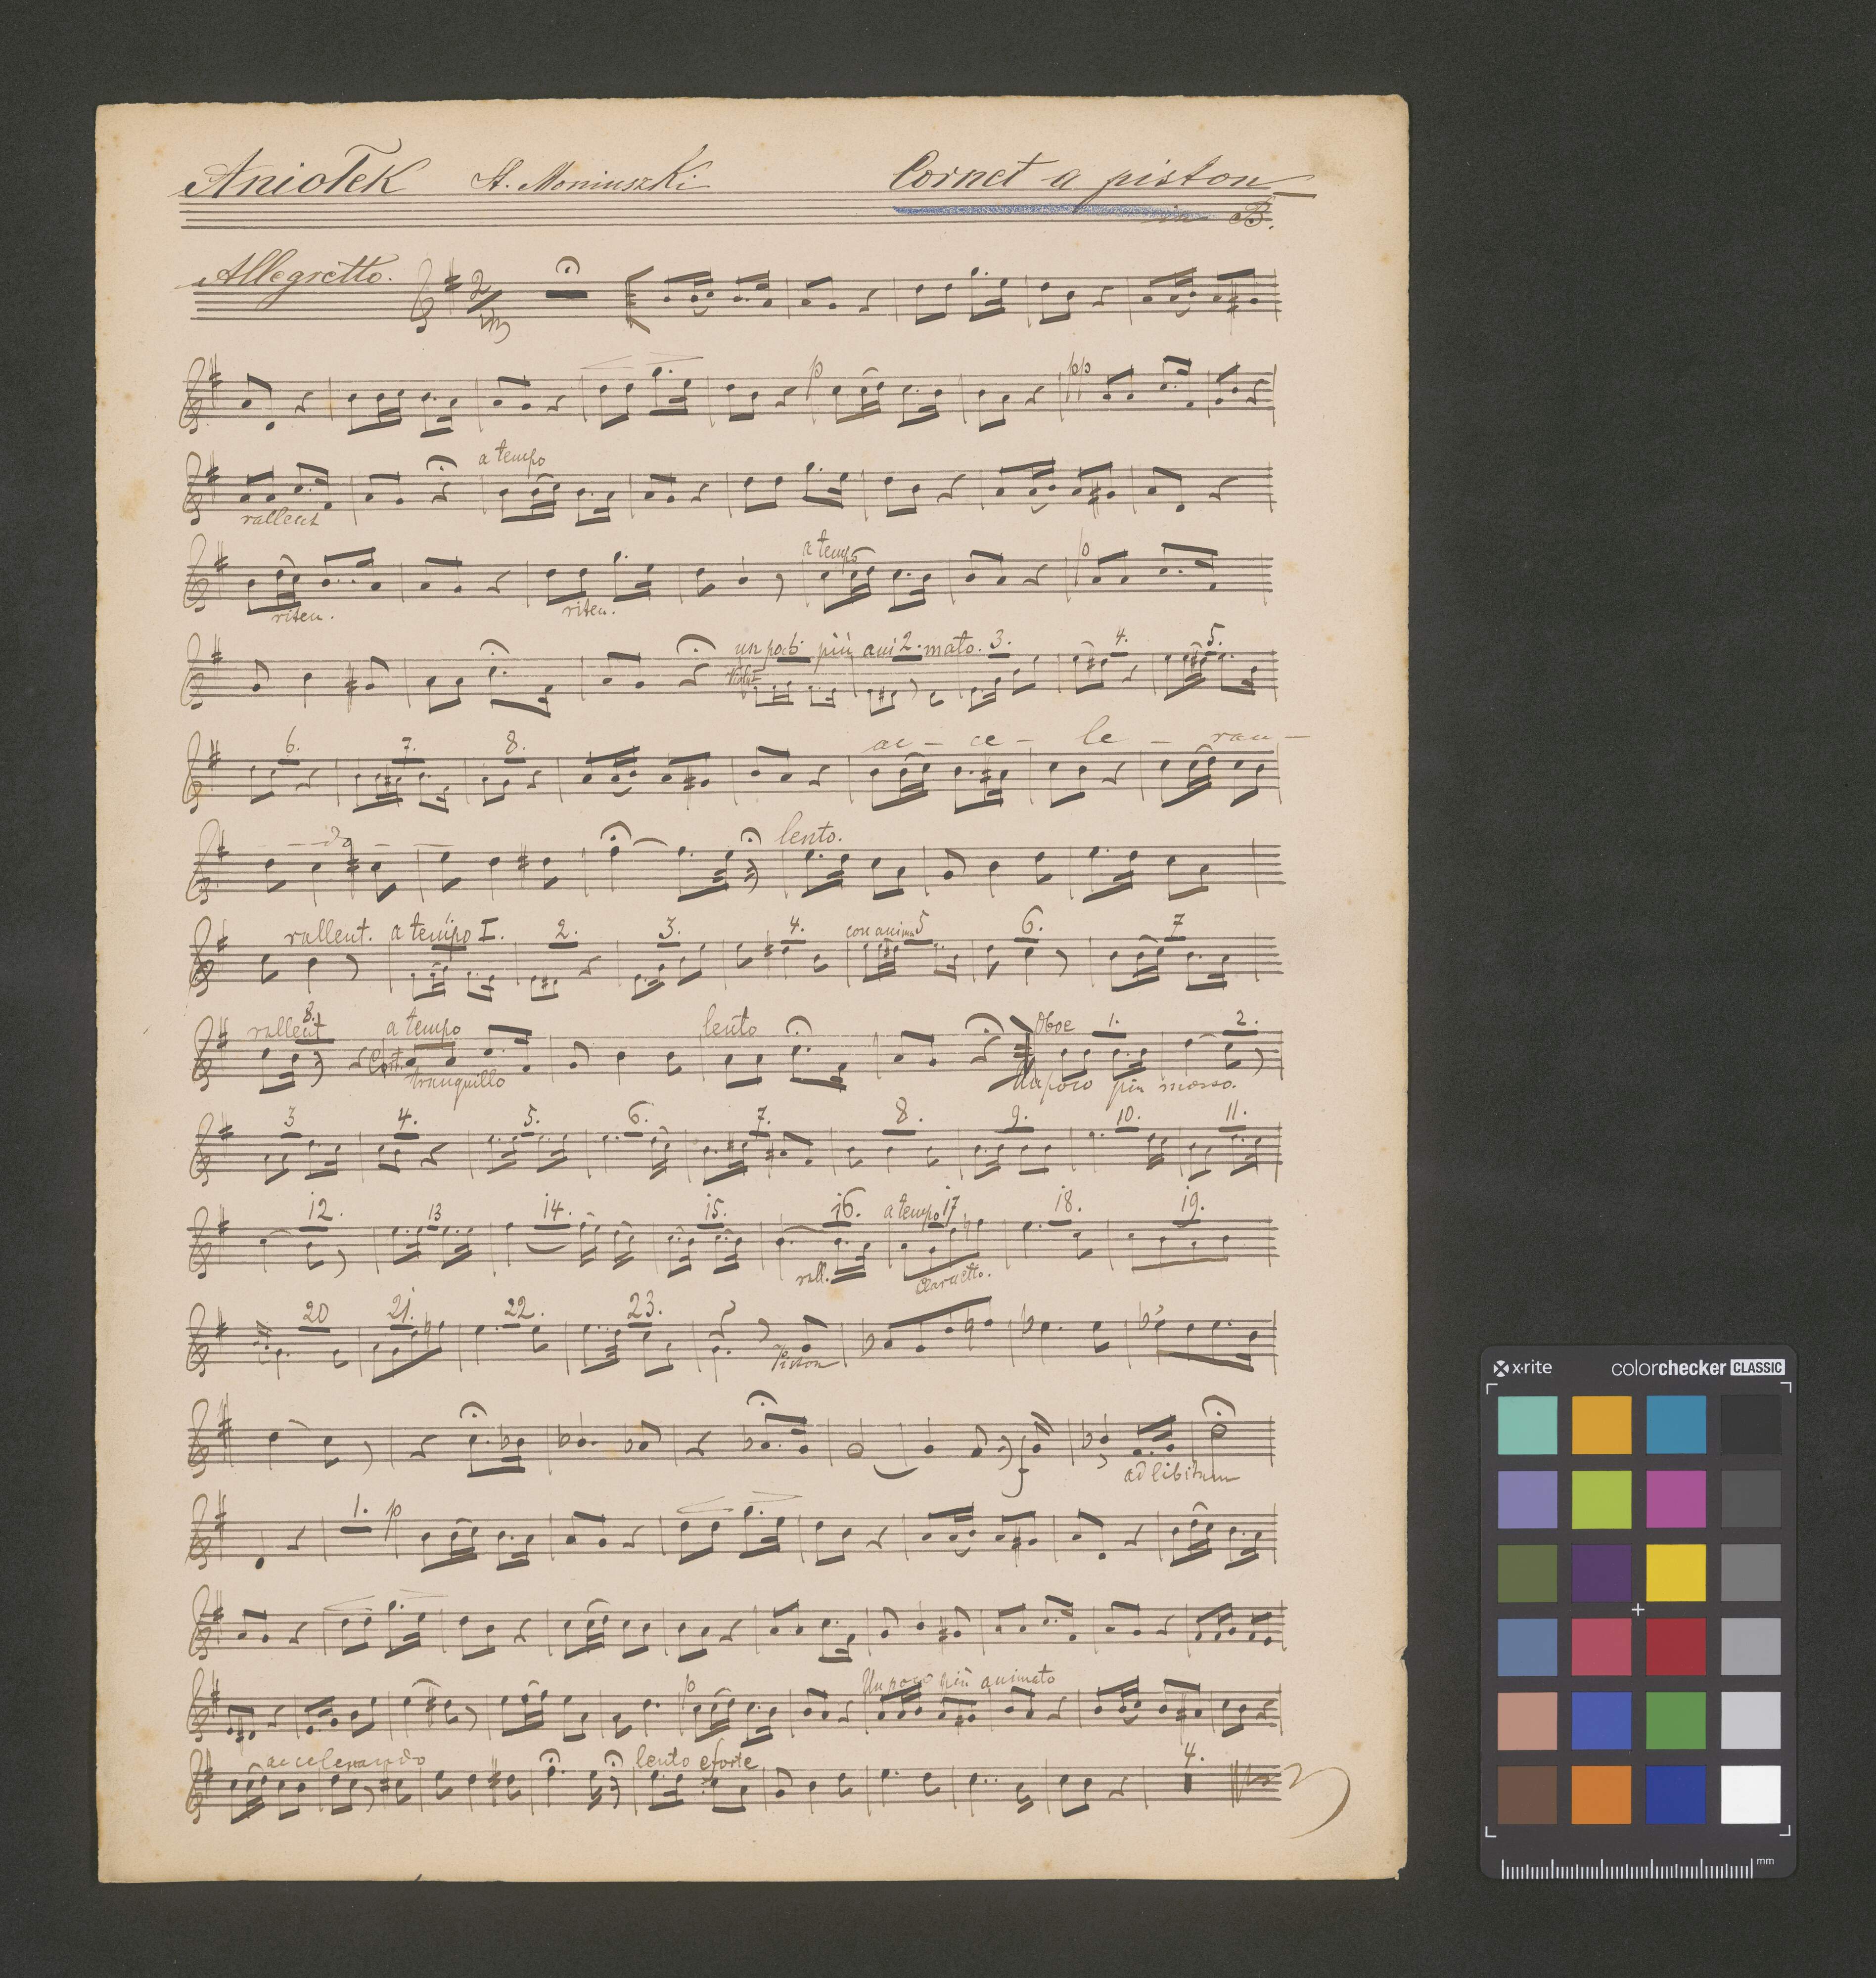 Aniołek St. Moniuszki Cornet a piston
in B.
Allegretto. 2
p pp
a tempo
rallent
a tempo p
riten. riten.
un poco più animato. 2. 3. 4. 5.
6. 7. 8. ac - ce - le - ran -
- - do - - lento.
rallent. a tempo I. 2. 3. 4. con anima 5 6. 7
rallent 8. a tempo lento Oboe 1. 2.
tranquillo Un poco più mosso.
3 4. 5. 6. 7. 8. 9. 10. 11.
12. 13 14. 15. 16. a tempo 17 18. 19.
rall. Clarnetto.
20 21. 22. 23.
Piston
f ad libitum
1. p
p Un poco più animato
accelerando lento e forte 4.
x-rite colorchecker CLASSIC
mm